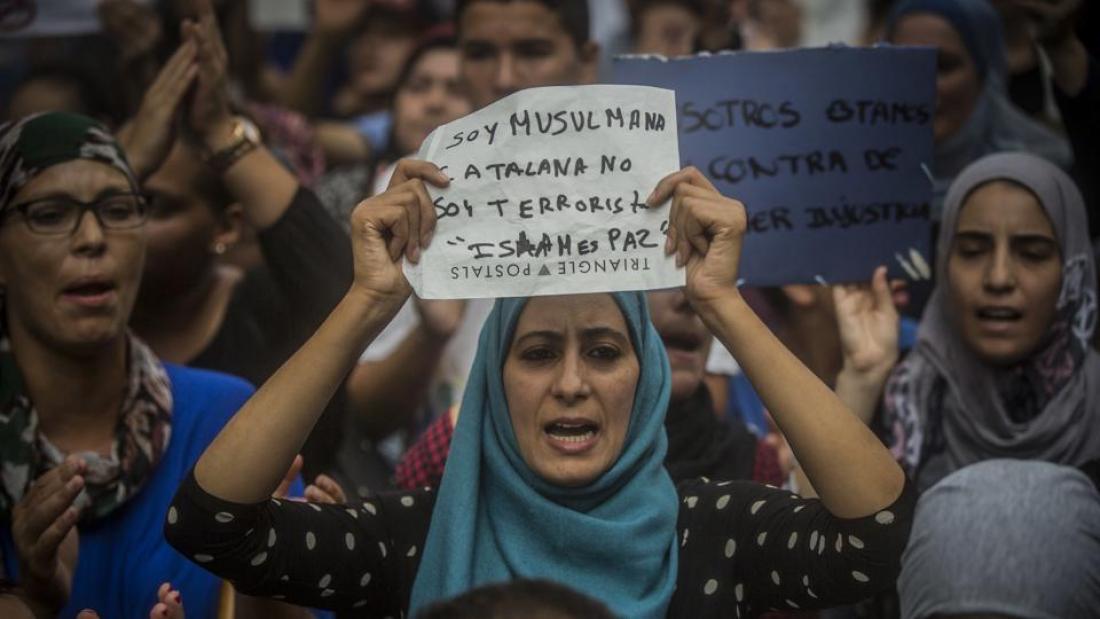 SOY MUSULMANA
CATALANA NO
SOY TERRORISTA
"ISLAM ES PAZ"
TRIANGLE POSTALS
SOTROS ESTAMOS
CONTRA DE
INJUSTICIA